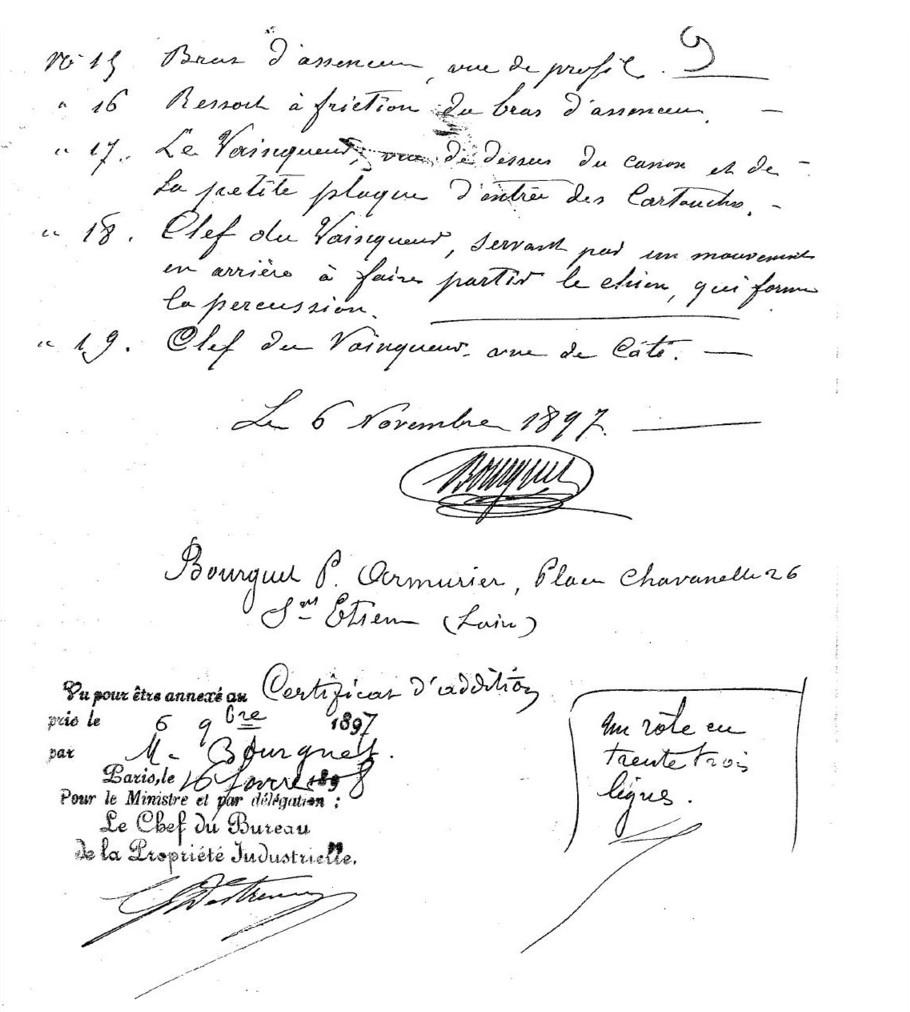 No 15 Bras d'assenceur, vue de profil. 9
" 16 Ressort à friction du bras d'assenceur. —
" 17. Le Vainqueur, vue de dessus du canon et de -
La petite plaque d'entrée des Cartouches. -
" 18. Clef du Vainqueur, servant par un mouvement
en arrière à faire partir le chien, qui forme
la percussion.
" 19. Clef du Vainqueur. vue de Côté. —
Le 6 Novembre 1897. —
Bourguet
Bourguet P. Armurier, Place Chavanelle 26
St Etienne (Loire)
Vu pour être annexé au Certificat d'addition
pris le 6 9bre 1897
par M. Bourguet.
Paris, le 16 1898
Pour le Ministre et par délégation :
Le Chef du Bureau
de la Propriété Industrielle,
un rôle en
trente trois
lignes.